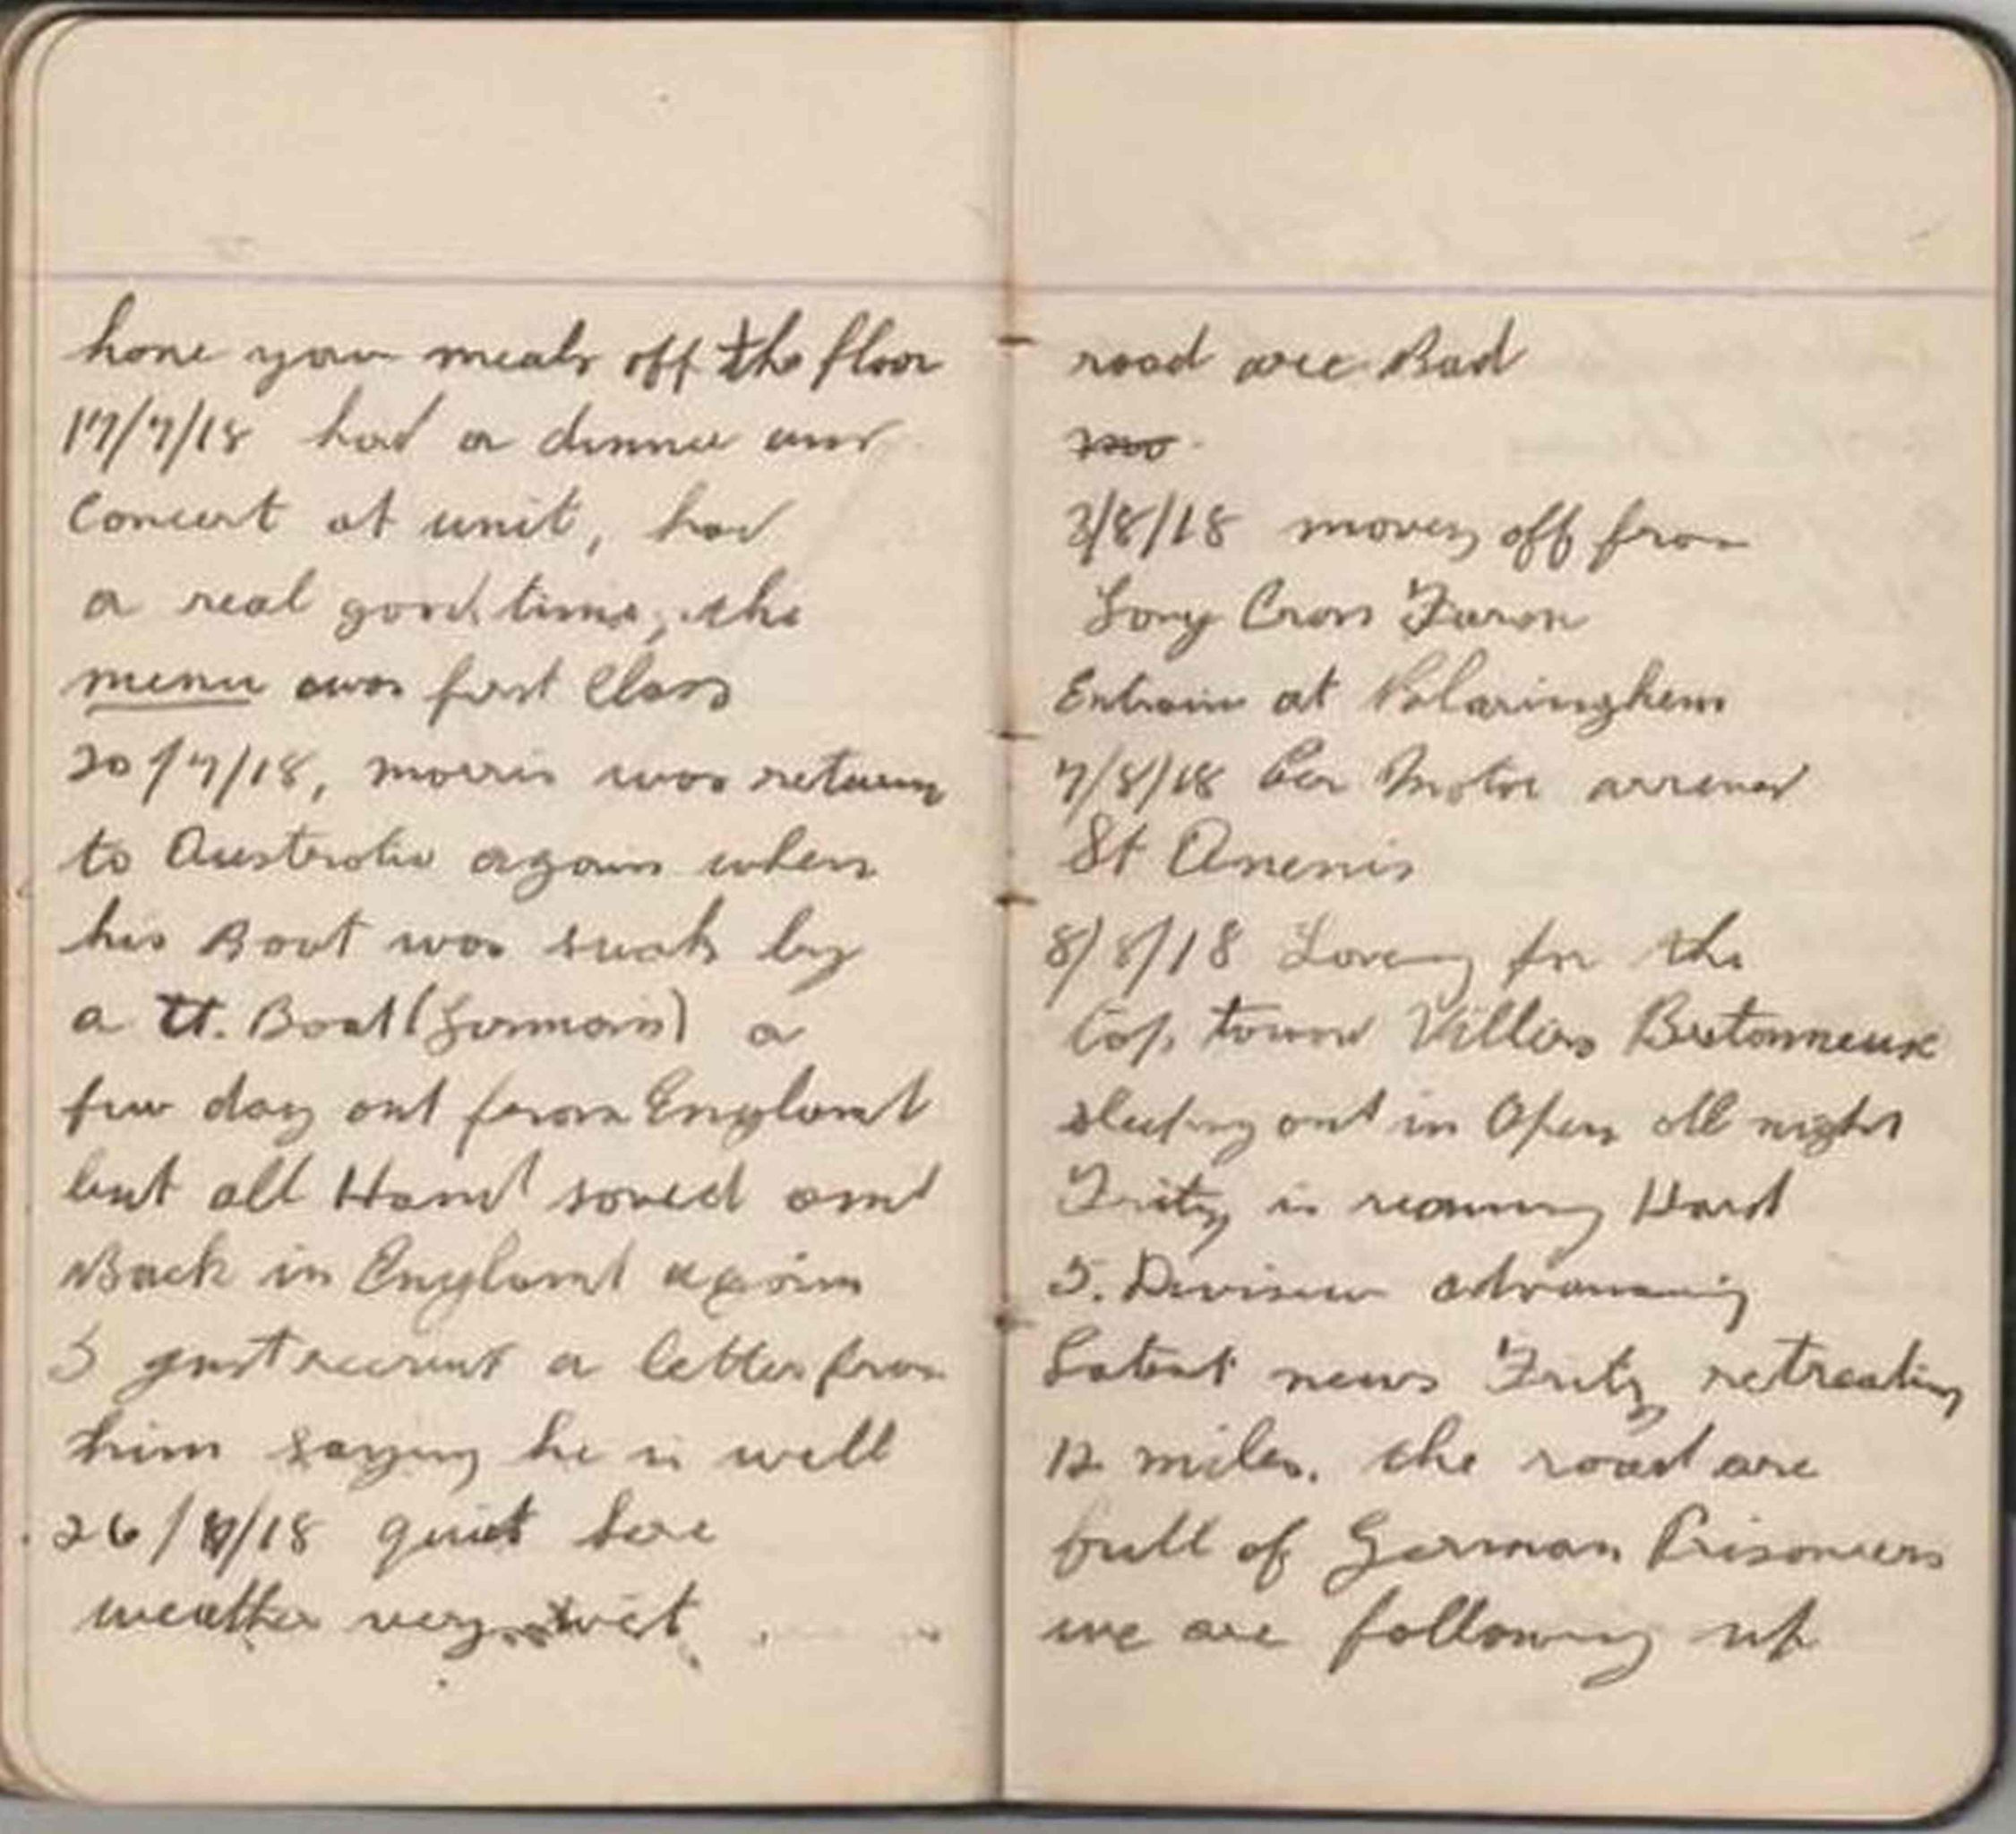 have your meals off the floor
17/7/18 had a dinner and
Concert at unit, had
a real good time, the
menu was first Class
20/7/18, morris was return
to Australia again when
his Boat was sunk by
a U. Boat (German) a
few day out from England
but all Hand saved and
Back in England again
I just received a letter from
him saying he is well
26/7/18 quiet here
weather very wet
road are Bad
3/8/18 moving off from
Long Cross Farm
Entrain at Blaringhem
7/8/18 Per Motor arrived
St
8/8/18 Leaving for the
Cap, toward Villers Bretonneux
sleeping out in Open all night
Fritz is running Hard
5. Division advancing
Latest news Fritz retreating
12 miles. the road are
full of German Prisoners
we are following up